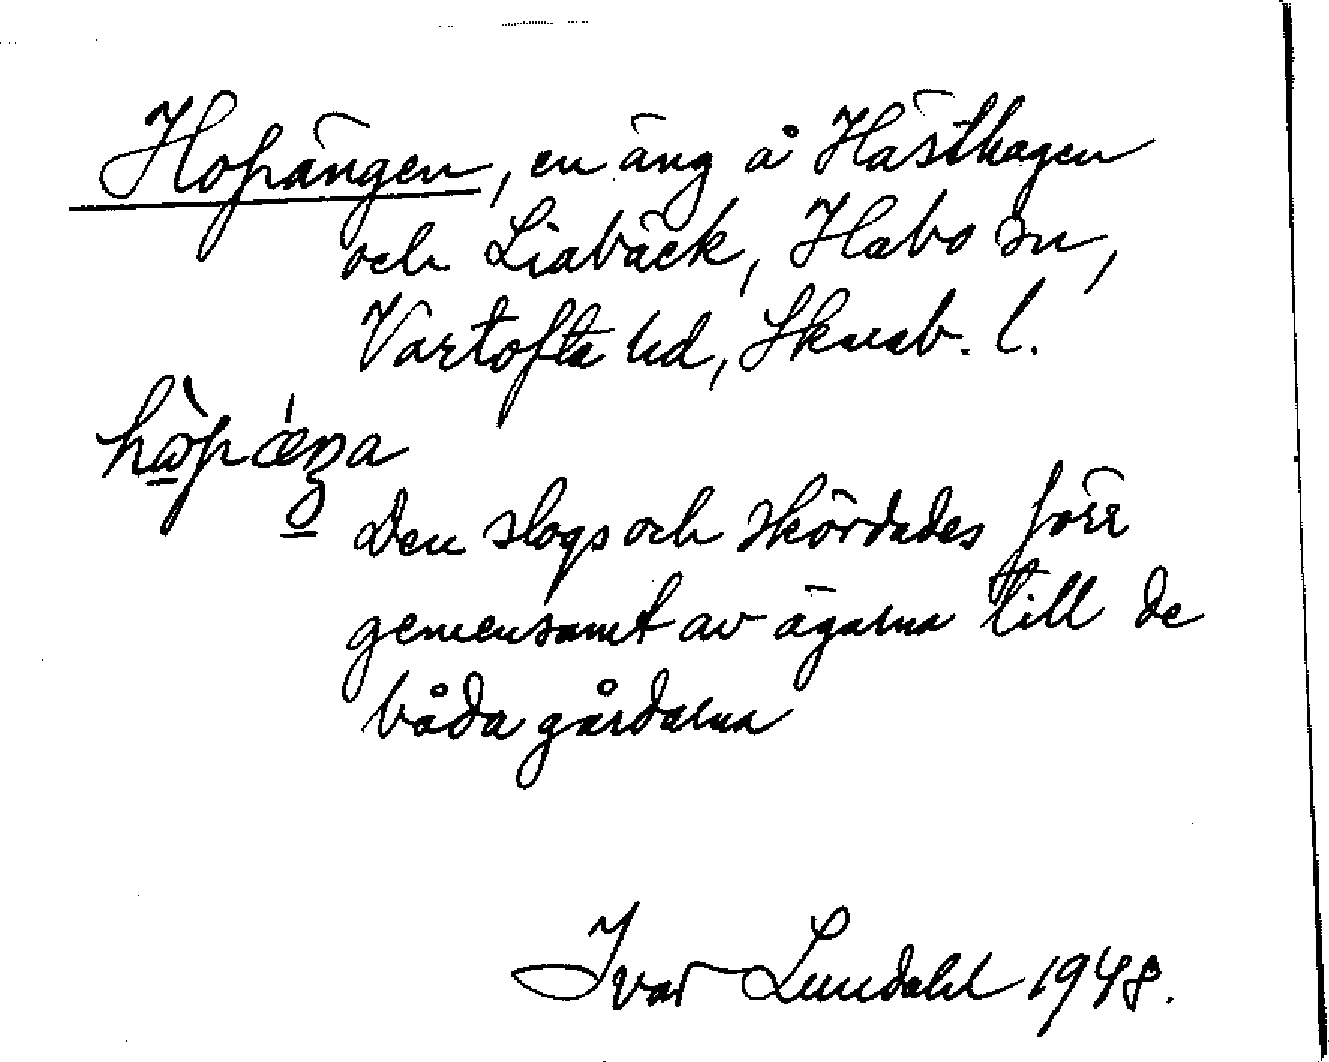 Hopängen, en äng å Hästhagen
och Liabäck, Habo sn,
Vartofta hd, Skarab. l.
Den slogs och skördades förr
gemensamt av ägarna till de
båda gårdarna
Ivar Lundahl 1948.